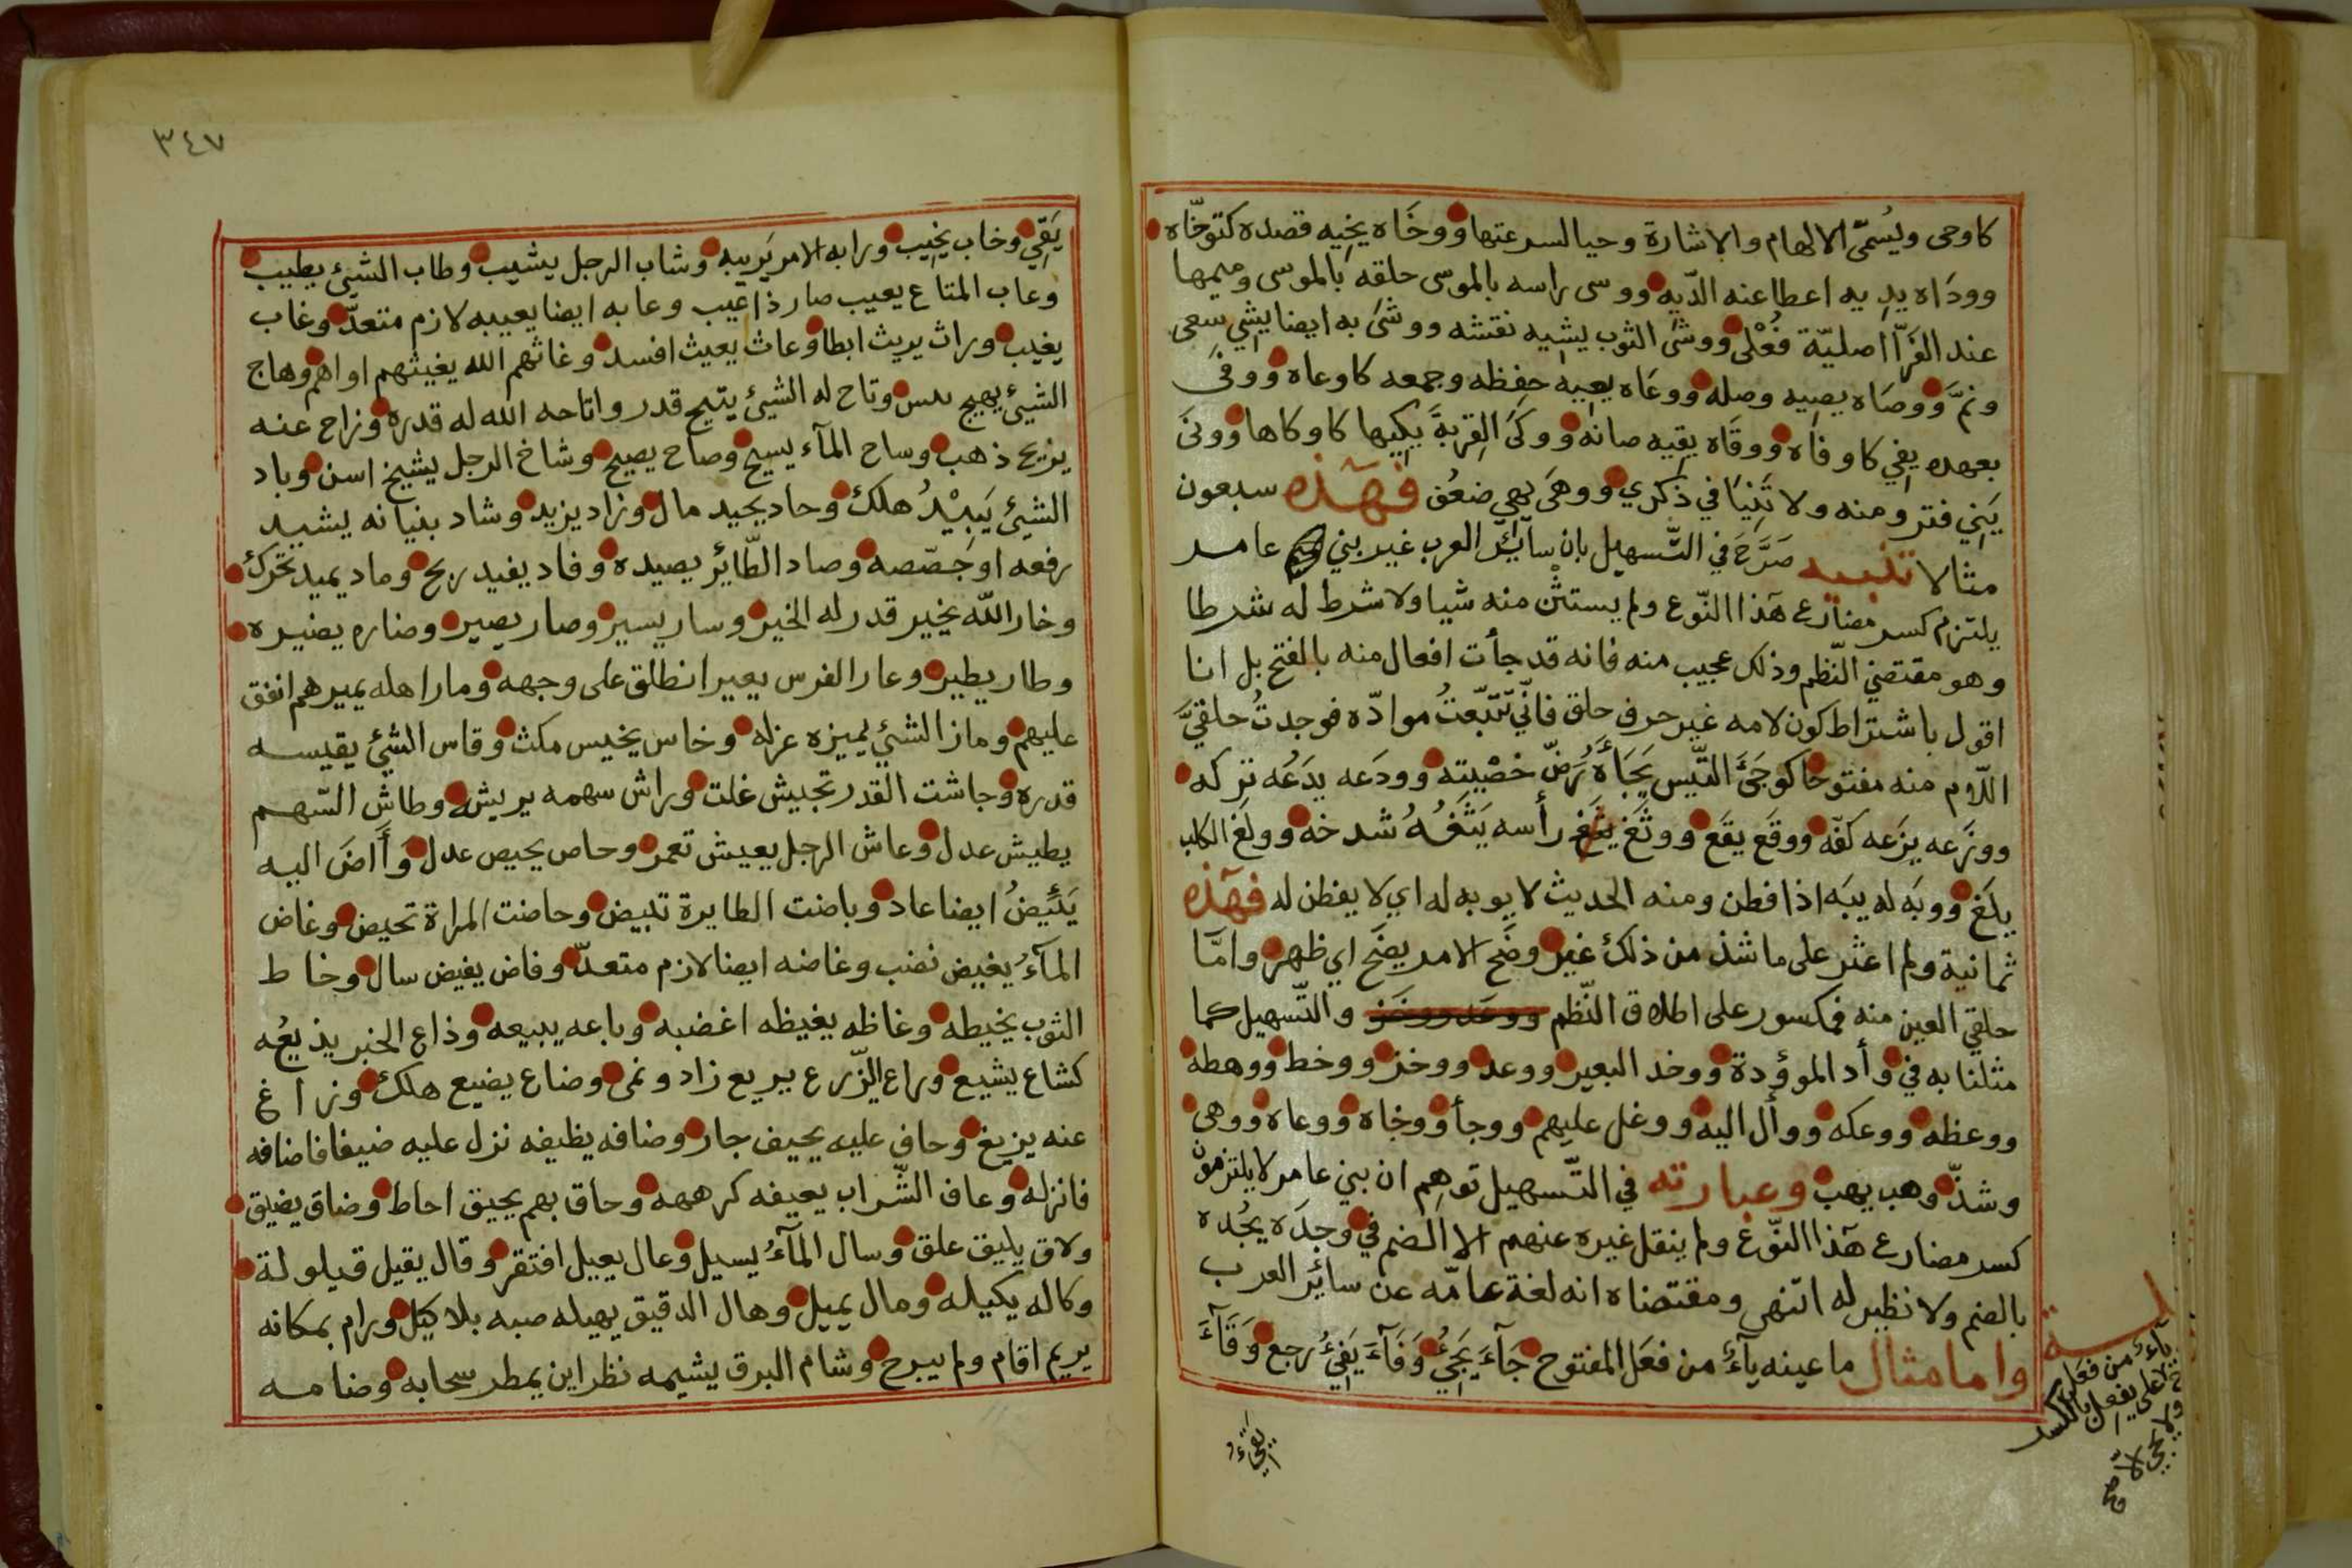 كاوحى ويُسمّى الالهام والاشارة وحيا لسرعتها ووخَاه يخِيه قصده كتوخّاه
وودَاه يدِيه اعطا عنه الدّيه ووسى راسه بالموسى حلقه بالموسى وميمها
عند الفرّا اصليّة فُعْلى ووشَى الثوب يشِيه نقشه ووشَى به ايضا يشِي سعى
ونمَّ ووصَاه يصِيه وصله ووعَاه يعِيه حفِظه وجمعه كاوعاه ووفَى
بعهده يفِي كاوفاه ووقَاه يقِيه صانه ووكَى القِربةَ يكِيها كاوكاها وونَى
يَنِي فتر ومنه ولا تَنِيَا في ذكري ووهَى يهِي ضعُف فهٰذه سبعون
مثالا تنبيه صَرَّحَ في التّسهيل بان سآئر العرب غير بني عامر
يلتزم كسر مضارع هٰذا النّوع ولم يستثْن منه شيا ولا شرط له شرطا
وهو مقتضي النّظم وذلك عجيب منه فانه قد جأت افعال منه بالفتح بل انا
اقول باشتراط كون لامه غير حرف حلق فانّي تَتَبّعتُ موادّه فوجدتُ حلقيَّ
اللام منه مفتوحا كوجَئَ التّيس يَجَاَهُ رَضّ خصْيته وودَعه يدَعُه تركه
ووزَعه يزَعه كفّه ووقَع يقَع ووثَغ يثغ رأسه يَثَغُهُ شدخه وولَغ الكلب
يلَغ ووبَه له يبَه اذا فطن ومنه الحديث لا يوبه له اي لا يفطن له فهٰذه
ثمانية ولم اعثر على ما شذ من ذلك غير وضَح الامر يضَح اي ظهر وامَّا
حلقي العين منه فمكسور على اطلاق النّظم ووعَد ووخَز والتّسهيل كما
مثلنا به في وأد الموؤدة ووخد البعير ووعد ووخز ووخط ووهطه
ووعظه ووعكه ووأل اليه ووغل عليهم ووجأ ووخاه ووعاه ووهى
وشذّ وهب يهب وعبارته في التّسهيل توهِم ان بني عامر لا يلتزمون
كسر مضارع هٰذا النّوع ولم ينقل غيره عنهم الا الضم في وجدَه يجُده
بالضم ولا نظير له انتهى ومقتضاه انه لغة عامّه عن سائر العرب
واما مثال ما عينه يآءٌ من فعَل المفتوح جَآءَ يَجِئُ وَفَآءَ يَفِئُ رجع وَقَآءَ
يآءٌ من فعَل
على يفعِل بالكسر
يقيءُ
٣٤٧
يَقِي وخاب يخِيب ورابه الامر يَريبه وشاب الرجل يشيب وطاب الشئ يطيب
وعاب المتاع يعيب صار ذا عيب وعابه ايضا يعيبه لازم متعدّ وغاب
يغيب وراث يريث ابطا وعاث يعيث افسد وغاثهم الله يغيثهم اواهم وهاج
الشئ يهيج يبس وتاح له الشئ يتيح قدر واتاحه الله له قدره وزاح عنه
يزيح ذهب وساح المآء يسيح وصاح يصيح وشاخ الرجل يشيخ اسن وباد
الشئ يَبِيْدُ هلك وحاد يحيد مال وزاد يزيد وشاد بنيانه يشيد
رفعه او جصّصه وصاد الطّائر يصيده وفاد يفيد ربح وماد يميد تحرك
وخار الله يخير قدر له الخير وسار يسير وصار يصير وضاره يضيره
وطار يطير وعار الفرس يعير انطلق على وجهه ومار اهله يميرهم انفق
عليهم وماز الشئ يميزه عزله وخاس يخيس مكث وقاس الشئ يقيسه
قدره وجاشت القدر تجيش غلت وراش سهمه يريشه وطاش السّهم
يطيش عدل وعاش الرجل يعيش تعمر وحاص يحيص عدل وَأَاضَ اليه
يَئِيضُ ايضا عاد وباضت الطايرة تبيض وحاضت المراة تحيض وغاض
المآءُ يغيض نضب وغاضه ايضا لازم متعدّ وفاض يفيض سال وخاط
الثوب يخيطه وغاظه يغيظه اغضبه وباعه يبيعه وذاع الخبر يذيعُه
كشاع يشيع وراع الزّرع يريع زاد ونمى وضاع يضيع هلك وزاغ
عنه يزيغ وحاف عليه يحيف جار وضافه يظيفه نزل عليه ضيفا فاضافه
فانزله وعاف الشّراب يعيفه كرههه وحاق بهم يحيق احاط وضاق يضيق
ولاق يليق علق وسال المآءُ يسيل وعال يعيل افتقر وقال يقيل قيلولة
وكاله يكيله ومال يميل وهال الدقيق يهيله صبه بلا كيل ورام بمكانه
يريم اقام ولم يبرح وشام البرق يشيمه نظر اين يمطر سحابه وضامه